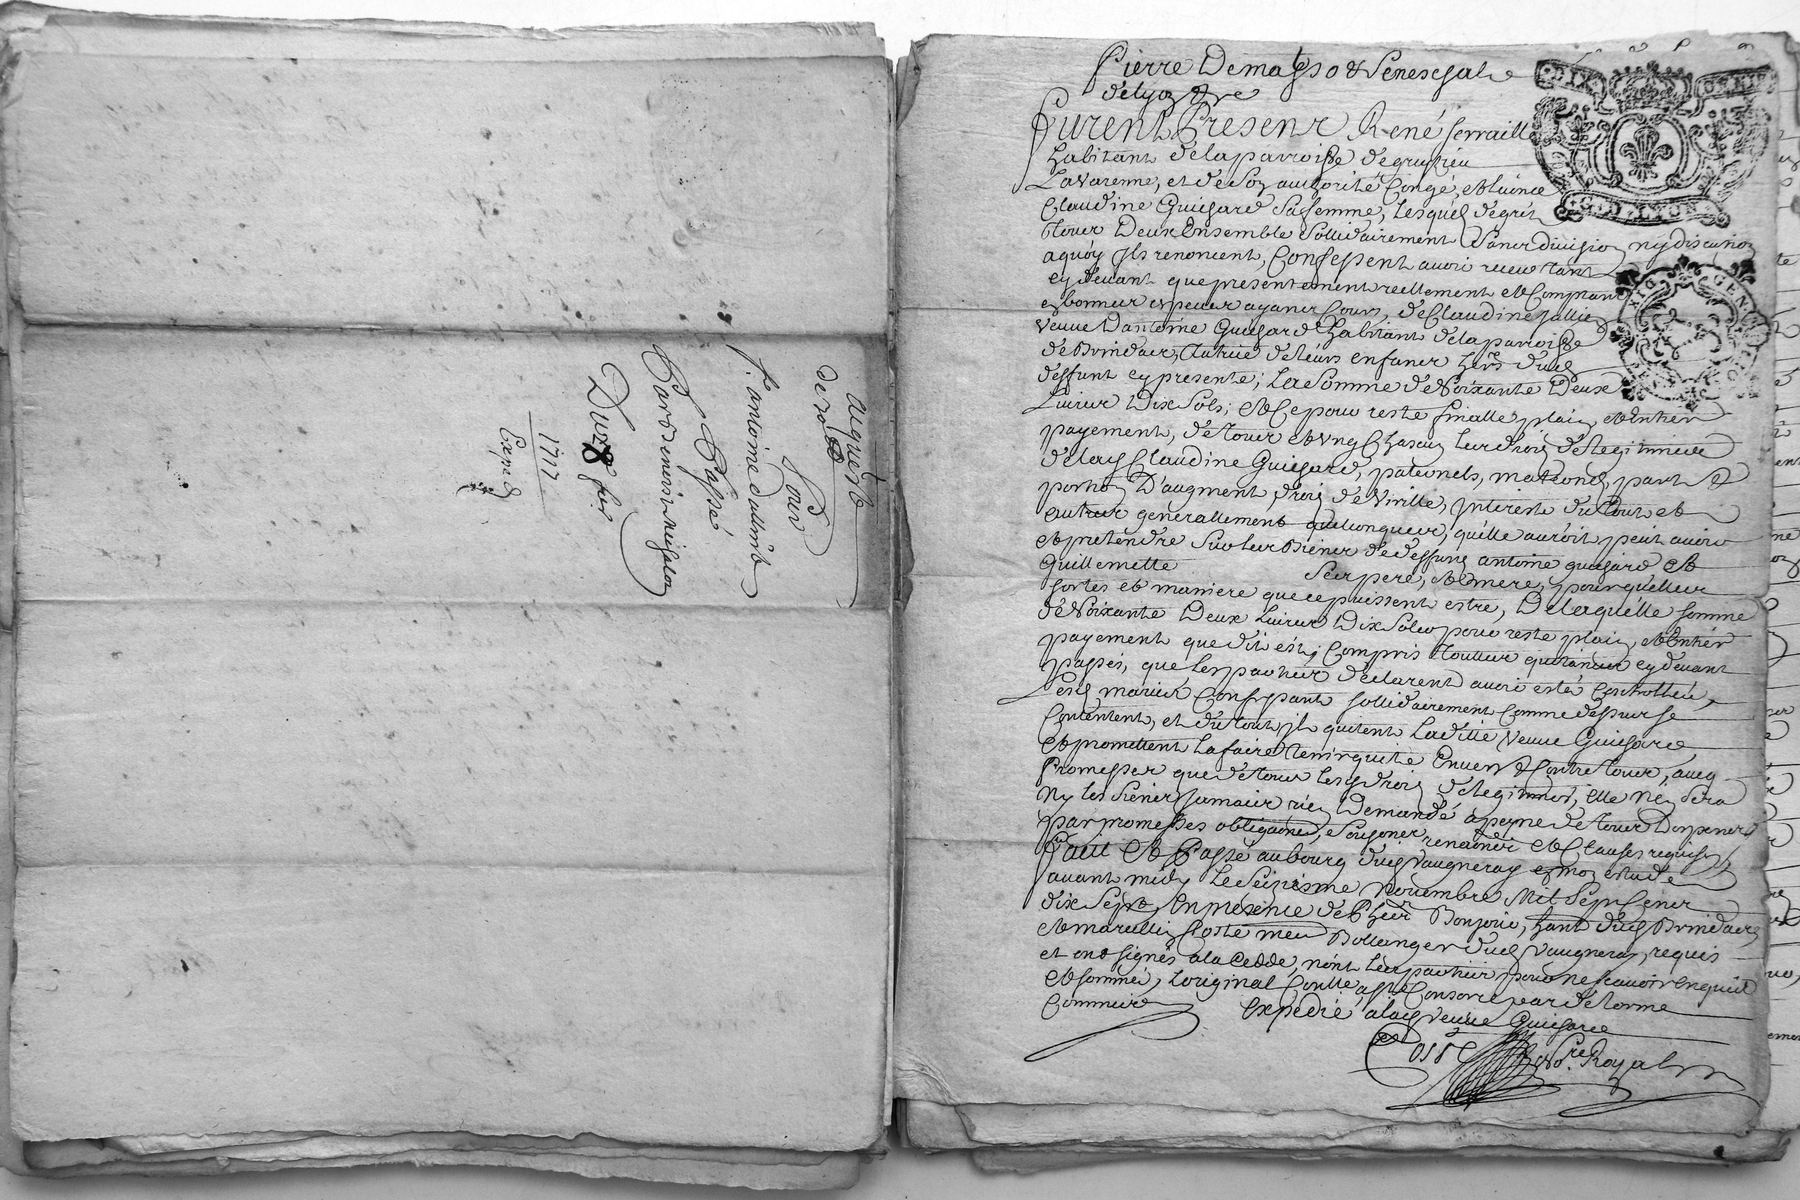 acquest
de
Pour
S. antoine
Passé
Pardevant
Du
1717
Exped
Pierre Dema so & Seneschal
de lyon
Furent Present René ferraille
habitant de la parroisse de grezieu
La Varenne, et de son authorité Congé, et licence
Claudine Guichard Sa femme, lesquels de gré
tous Deux Ensemble Sollidairement Sans division ny discution
a quoy Ils renoncent, Confessent avoir receu tant
cy devant que presentement reellement et Comptant
en bonnes especes ayant Cours, de Claudine Jallier
veuve D'antoine Guichard habitant de la parroisse
de Brindas, tutrice de leurs enfans her.s dud.
deffunt cy presente; La Somme de Soixante Deux
Livres Dix Sols; et Ce pour reste finalle plain et Entier
payement, de tous et Ung Chascun leurs drois de legitimes
de lad. Claudine Guichard, paternels, maternels, part et
portion D'augment, drois de Virille, Interests du tout et
autres generallement quelconques, qu'elle auroit peut avoir
et pretendre Sur les Biens de deffuns antoine guichard et
Guillemette Ses pere, et mere, pour quelles
sortes et maniere que ce puissent estre, De laquelle somme
de Soixante Deux Livres Dix Sols pour reste plain, et Entier
payement que dit est; Compris touttes quitances cy devant
passés, que les parties declarent avoir estés Controllées,
Lesd. mariés Confessants sollidairement comme dessus se
Contentent, et du tout Ils quitent Laditte veuve Guichard
et promettent la faire tenir quitte Envers & Contre tous, avec
Promesses que de tous lesd. drois de legitimes, elle ne Sera
Ny les Siens Jamais rien Demandé a peyne de tous Despens
par promesses obligaons, renaons et Clauses requises
Fait et Passé au bourg dud. Vaugneray en mon estude
avant midy Le Seizieme Novembre Mil Sept Cent
dix Sept, En presence de Bonjour, hant dud. Brindas
et Coste me Boullanger dud. Vaugneray, requis
et ont signés a la Cedde, non les parties pour ne scavoir enquis
et sommés, l'original Conllé,
Expedié a lad. veuve Guichard
Coste No.re Royal
DIX
GEN LYON